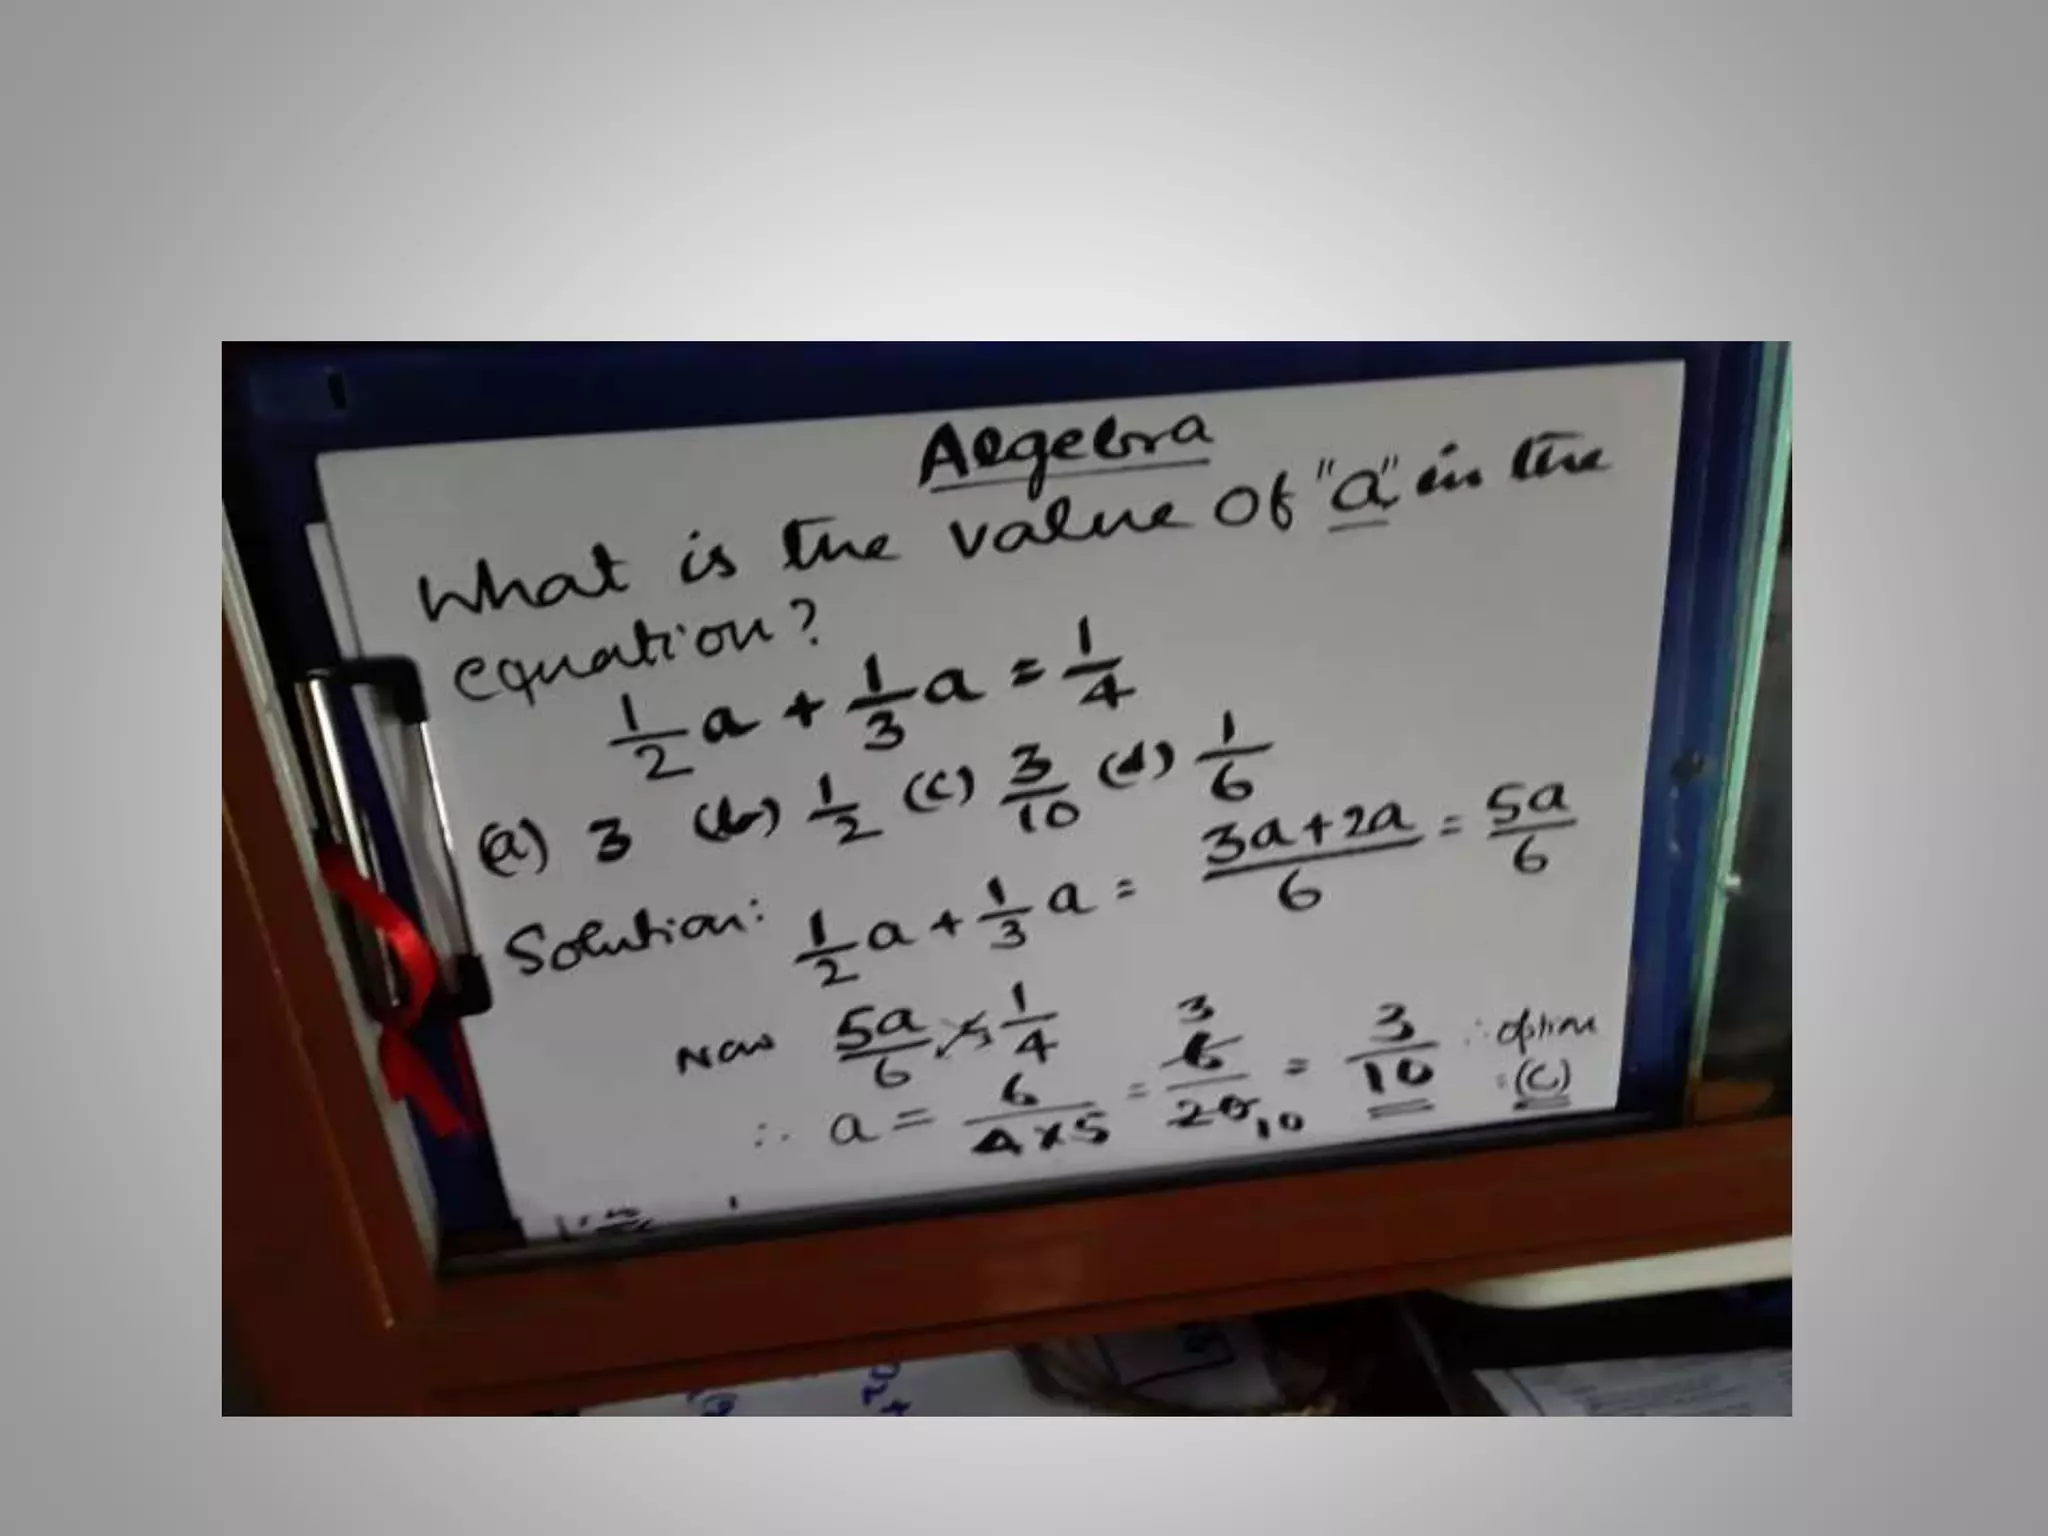 Algebra
What is the value of "a" in the
equation?
1/2 a + 1/3 a = 1/4
(a) 3 (b) 1/2 (c) 3/10 (d) 1/6
Solution: 1/2 a + 1/3 a = 3a+2a/6 = 5a/6
Now 5a/6 = 1/4
∴ a = 6/4x5 = 3 6/20 10 = 3/10 ∴ option
= (C)